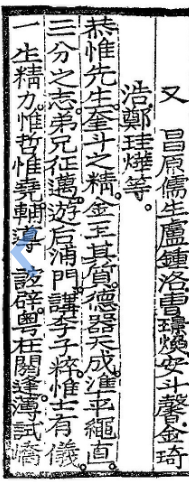 又　昌原儒生盧鍾洛曺璟煥安斗馨金琦
浩鄭珪燁等
恭惟先生。奎斗之精。金玉其質。德器天成。準平繩直。
三分之志。弟兄征邁。遊后浦門。講李子粹。惟王有儀。
一生精力。惟哲惟堯。輔導 詖辟。粤在閼逢。薄試